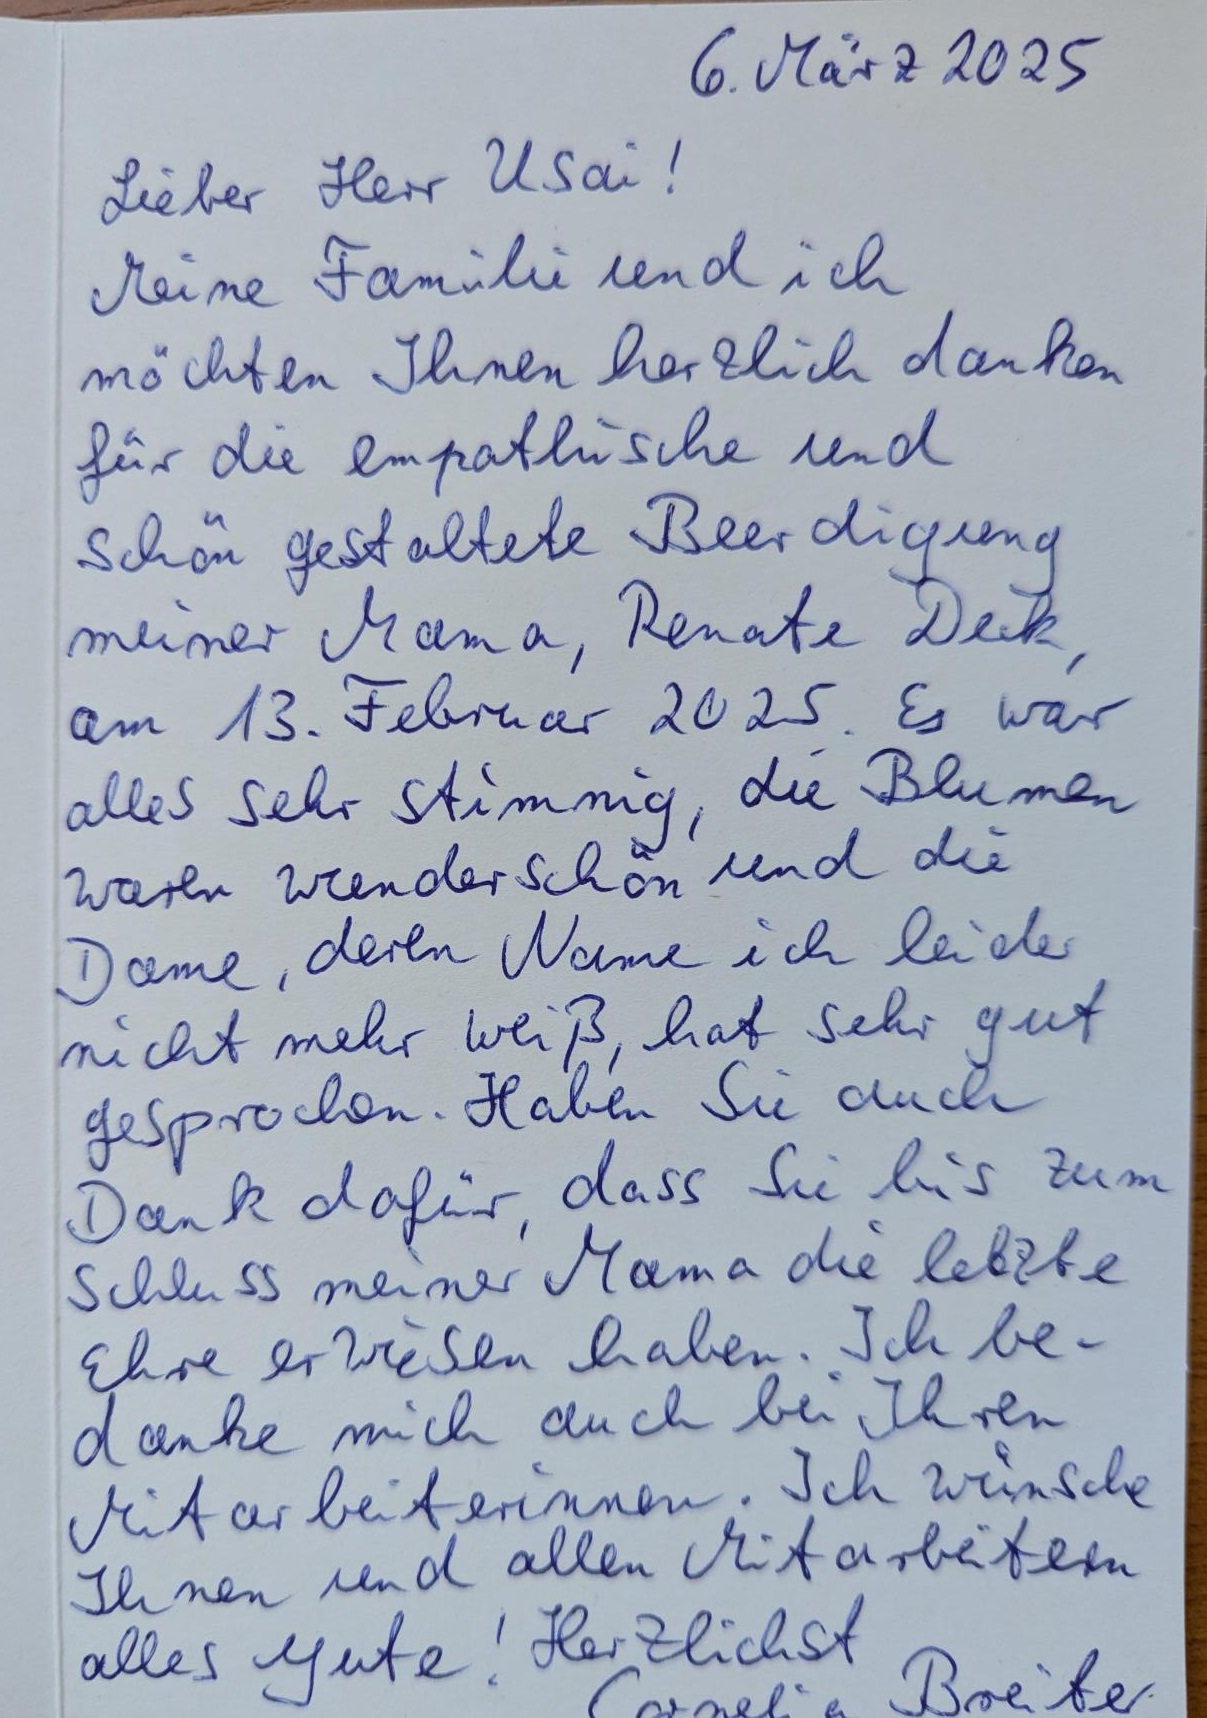 6. März 2025
Lieber Herr Usai!
Meine Familie und ich
möchten Ihnen herzlich danken
für die empathische und
schön gestaltete Beerdigung
meiner Mama, Renate Deik,
am 13. Februar 2025. Es war
alles sehr stimmig, die Blumen
waren wunderschön und die
Dame, deren Name ich leider
nicht mehr weiß, hat sehr gut
gesprochen. Haben Sie auch
Dank dafür, dass Sie bis zum
Schluss meiner Mama die letzte
Ehre erwiesen haben. Ich be-
danke mich auch bei Ihren
Mitarbeiterinnen. Ich wünsche
Ihnen und allen Mitarbeitern
alles Gute! Herzlichst
Cornelia Breiter